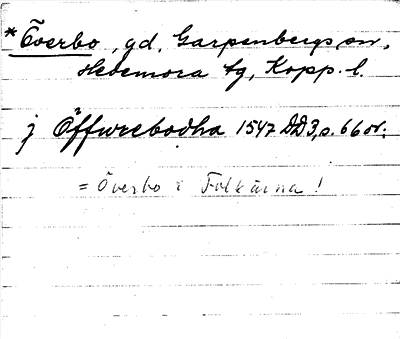 *Överbo, gd, Garpenbergs sn,
Hedemora tg, Kopp. l.
j Öffwrebodha 1547 DD3, s. 66 or.
= Överbo i Folkärna!